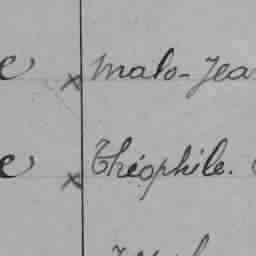 e × Malo-Jea
e × Théophile.